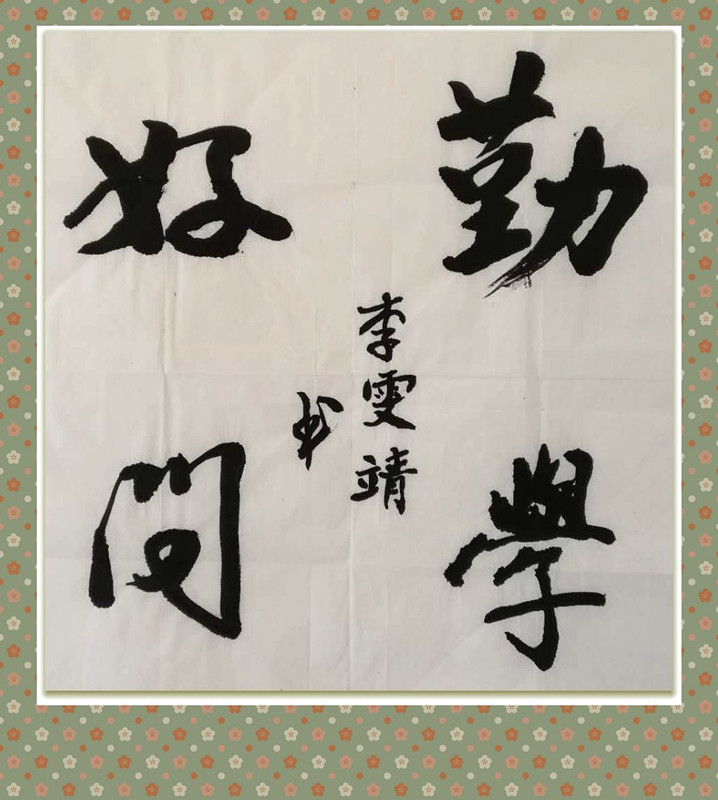 勤學
好問
李雯靖
书